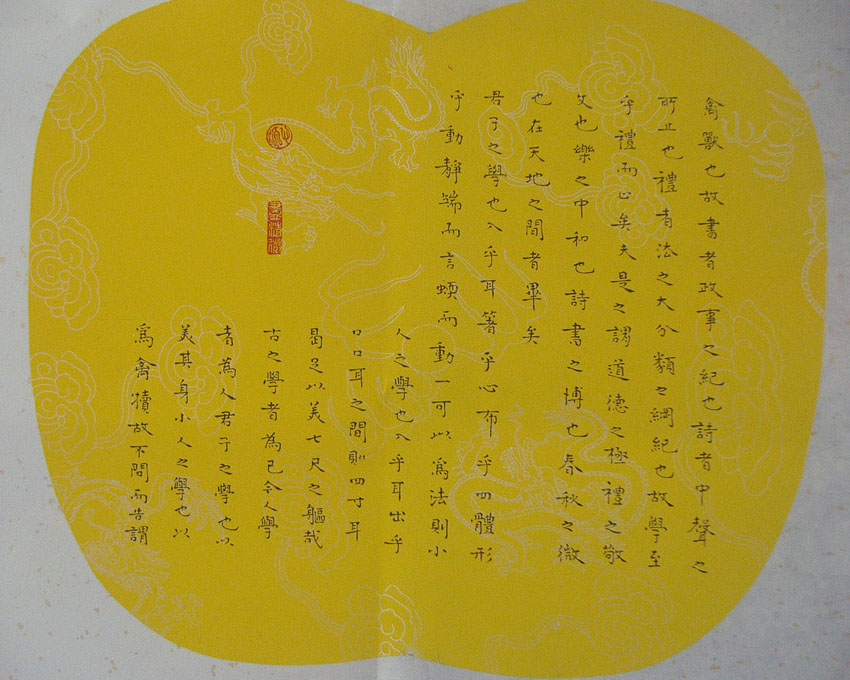 禽獸也故書者政事之紀也詩者中聲之
所止也禮者法之大分類之綱紀也故學至
乎禮而止矣夫是之謂道德之極禮之敬
文也樂之中和也詩書之博也春秋之微
也在天地之間者畢矣
君子之學也入乎耳箸乎心布乎四體形
乎動靜端而言蝡而動一可以為法則小
人之學也入乎耳出乎
口口耳之間則四寸耳
曷足以美七尺之軀哉
古之學者為己今人學
者為人君子之學也以
美其身小人之學也以
為禽犢故不問而告謂